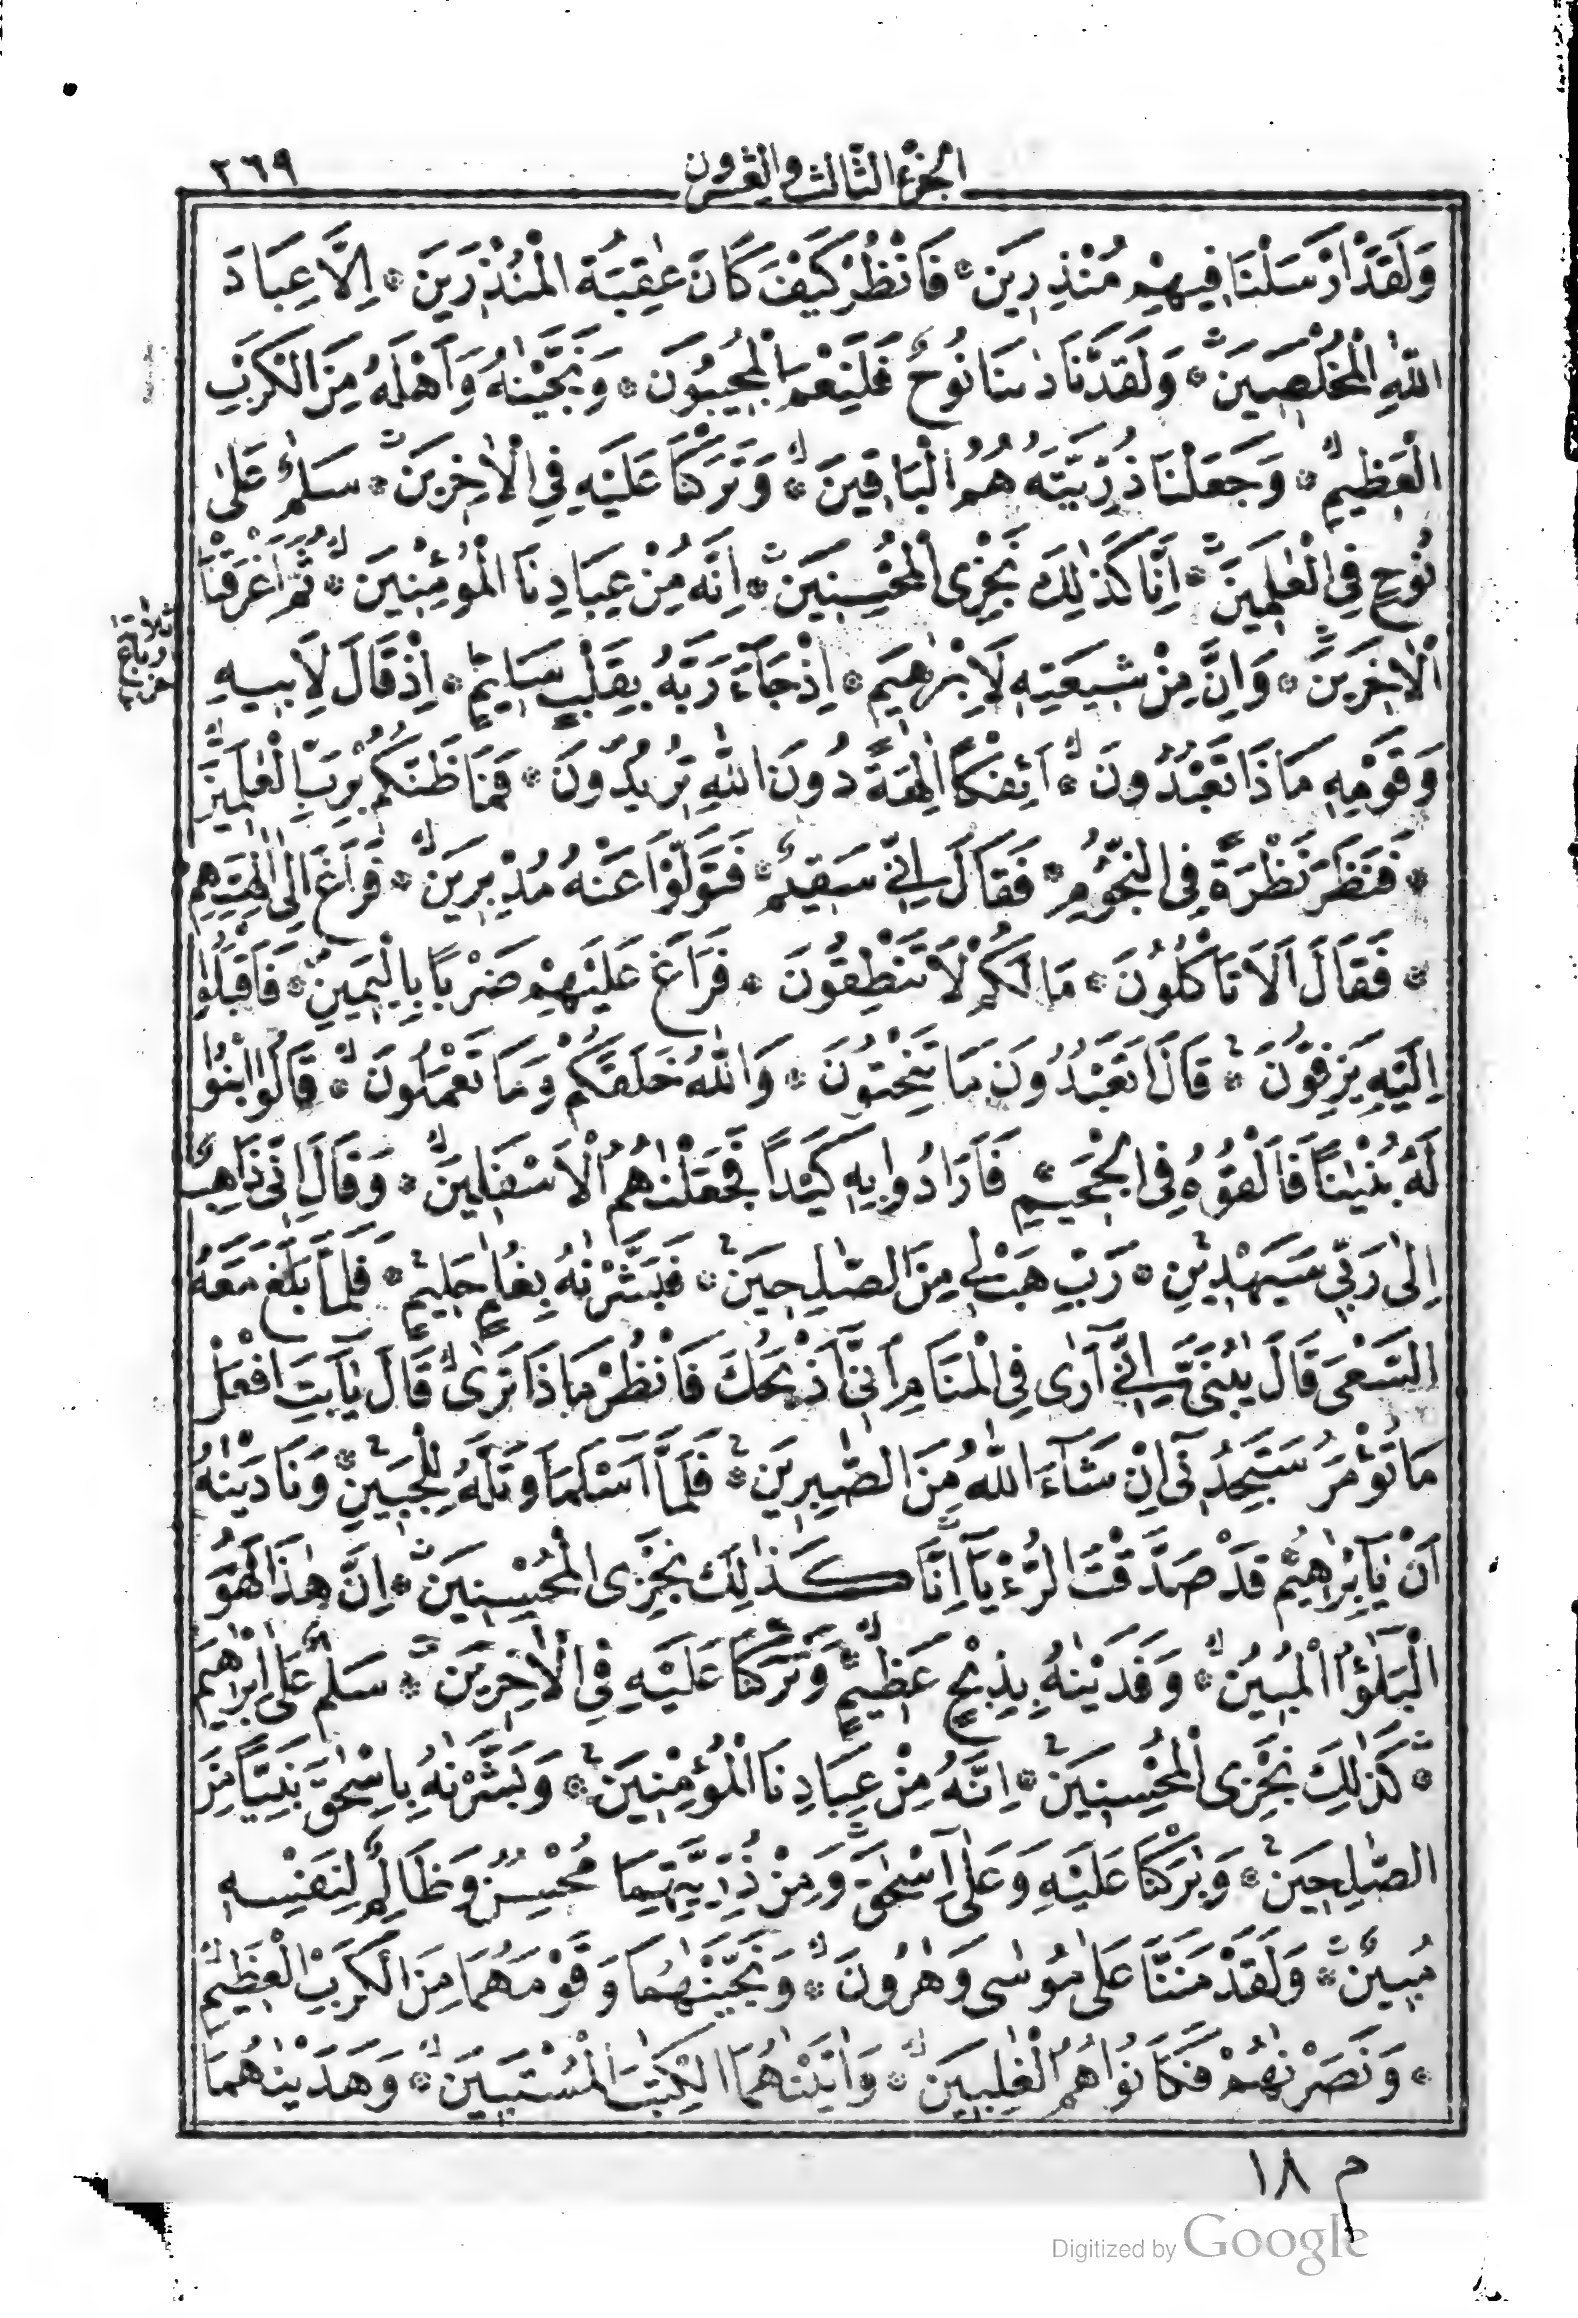 الجزء الثالث والعشرون ٢٦٩
وَلَقَدْ اَرْسَلْنَا فِيهِمْ مُنْذِرِينَ ۞ فَانْظُرْ كَيْفَ كَانَ عٰقِبَةُ الْمُنْذَرِينَ ۞ اِلَّا عِبَادَ
اللّٰهِ الْمُخْلَصِينَ ۞ وَلَقَدْ نَادٰىنَا نُوحٌ فَلَنِعْمَ الْمُجِيبُونَ ۞ وَنَجَّيْنٰهُ وَاَهْلَهُ مِنَ الْكَرْبِ
الْعَظِيمِ ۞ وَجَعَلْنَا ذُرِّيَّتَهُ هُمُ الْبَاقِينَ ۞ وَتَرَكْنَا عَلَيْهِ فِي الْاٰخِرِينَ ۞ سَلٰمٌ عَلٰى
نُوحٍ فِي الْعٰلَمِينَ ۞ اِنَّا كَذٰلِكَ نَجْزِى الْمُحْسِنِينَ ۞ اِنَّهُ مِنْ عِبَادِنَا الْمُؤْمِنِينَ ۞ ثُمَّ اَغْرَقْنَا
الْاٰخَرِينَ ۞ وَاِنَّ مِنْ شِيعَتِهِ لَاِبْرٰهِيمَ ۞ اِذْ جَآءَ رَبَّهُ بِقَلْبٍ سَلِيمٍ ۞ اِذْ قَالَ لِاَبِيهِ
وَقَوْمِهِ مَاذَا تَعْبُدُونَ ۞ اَئِفْكًا اٰلِهَةً دُونَ اللّٰهِ تُرِيدُونَ ۞ فَمَا ظَنُّكُمْ بِرَبِّ الْعٰلَمِينَ
۞ فَنَظَرَ نَظْرَةً فِى النُّجُومِ ۞ فَقَالَ اِنِّي سَقِيمٌ ۞ فَتَوَلَّوْا عَنْهُ مُدْبِرِينَ ۞ فَرَاغَ اِلٰى اٰلِهَتِهِمْ
۞ فَقَالَ اَلَا تَاْكُلُونَ ۞ مَا لَكُمْ لَا تَنْطِقُونَ ۞ فَرَاغَ عَلَيْهِمْ ضَرْبًا بِالْيَمِينِ ۞ فَاَقْبَلُوا
اِلَيْهِ يَزِفُّونَ ۞ قَالَ اَتَعْبُدُونَ مَا تَنْحِتُونَ ۞ وَاللّٰهُ خَلَقَكُمْ وَمَا تَعْمَلُونَ ۞ قَالُوا ابْنُوا
لَهُ بُنْيٰنًا فَاَلْقُوهُ فِى الْجَحِيمِ ۞ فَاَرَادُوا بِهِ كَيْدًا فَجَعَلْنٰهُمُ الْاَسْفَلِينَ ۞ وَقَالَ اِنِّى ذَاهِبٌ
اِلٰى رَبِّى سَيَهْدِينِ ۞ رَبِّ هَبْ لِي مِنَ الصّٰلِحِينَ ۞ فَبَشَّرْنٰهُ بِغُلٰمٍ حَلِيمٍ ۞ فَلَمَّا بَلَغَ مَعَهُ
السَّعْىَ قَالَ يٰبُنَىَّ اِنِّي اَرٰى فِى الْمَنَامِ اَنِّى اَذْبَحُكَ فَانْظُرْ مَاذَا تَرٰى قَالَ يٰآاَبَتِ افْعَلْ
مَا تُؤْمَرُ سَتَجِدُنِى اِنْ شَآءَ اللّٰهُ مِنَ الصّٰبِرِينَ ۞ فَلَمَّا اَسْلَمَا وَتَلَّهُ لِلْجَبِينِ ۞ وَنَادَيْنٰهُ
اَنْ يٰآاِبْرٰهِيمُ قَدْ صَدَّقْتَ الرُّءْيَا اِنَّا كَذٰلِكَ نَجْزِى الْمُحْسِنِينَ ۞ اِنَّ هٰذَا لَهُوَ
الْبَلٰٓؤُا الْمُبِينُ ۞ وَفَدَيْنٰهُ بِذِبْحٍ عَظِيمٍ ۞ وَتَرَكْنَا عَلَيْهِ فِى الْاٰخِرِينَ ۞ سَلٰمٌ عَلٰى اِبْرٰهِيمَ
۞ كَذٰلِكَ نَجْزِى الْمُحْسِنِينَ ۞ اِنَّهُ مِنْ عِبَادِنَا الْمُؤْمِنِينَ ۞ وَبَشَّرْنٰهُ بِاِسْحٰقَ نَبِيًّا مِنَ
الصّٰلِحِينَ ۞ وَبٰرَكْنَا عَلَيْهِ وَعَلٰى اِسْحٰقَ وَمِنْ ذُرِّيَّتِهِمَا مُحْسِنٌ وَظَالِمٌ لِنَفْسِهِ
مُبِينٌ ۞ وَلَقَدْ مَنَنَّا عَلٰى مُوسٰى وَهٰرُونَ ۞ وَنَجَّيْنٰهُمَا وَقَوْمَهُمَا مِنَ الْكَرْبِ الْعَظِيمِ
۞ وَنَصَرْنٰهُمْ فَكَانُوا هُمُ الْغٰلِبِينَ ۞ وَاٰتَيْنٰهُمَا الْكِتٰبَ الْمُسْتَبِينَ ۞ وَهَدَيْنٰهُمَا
م ١٨
Digitized by Google